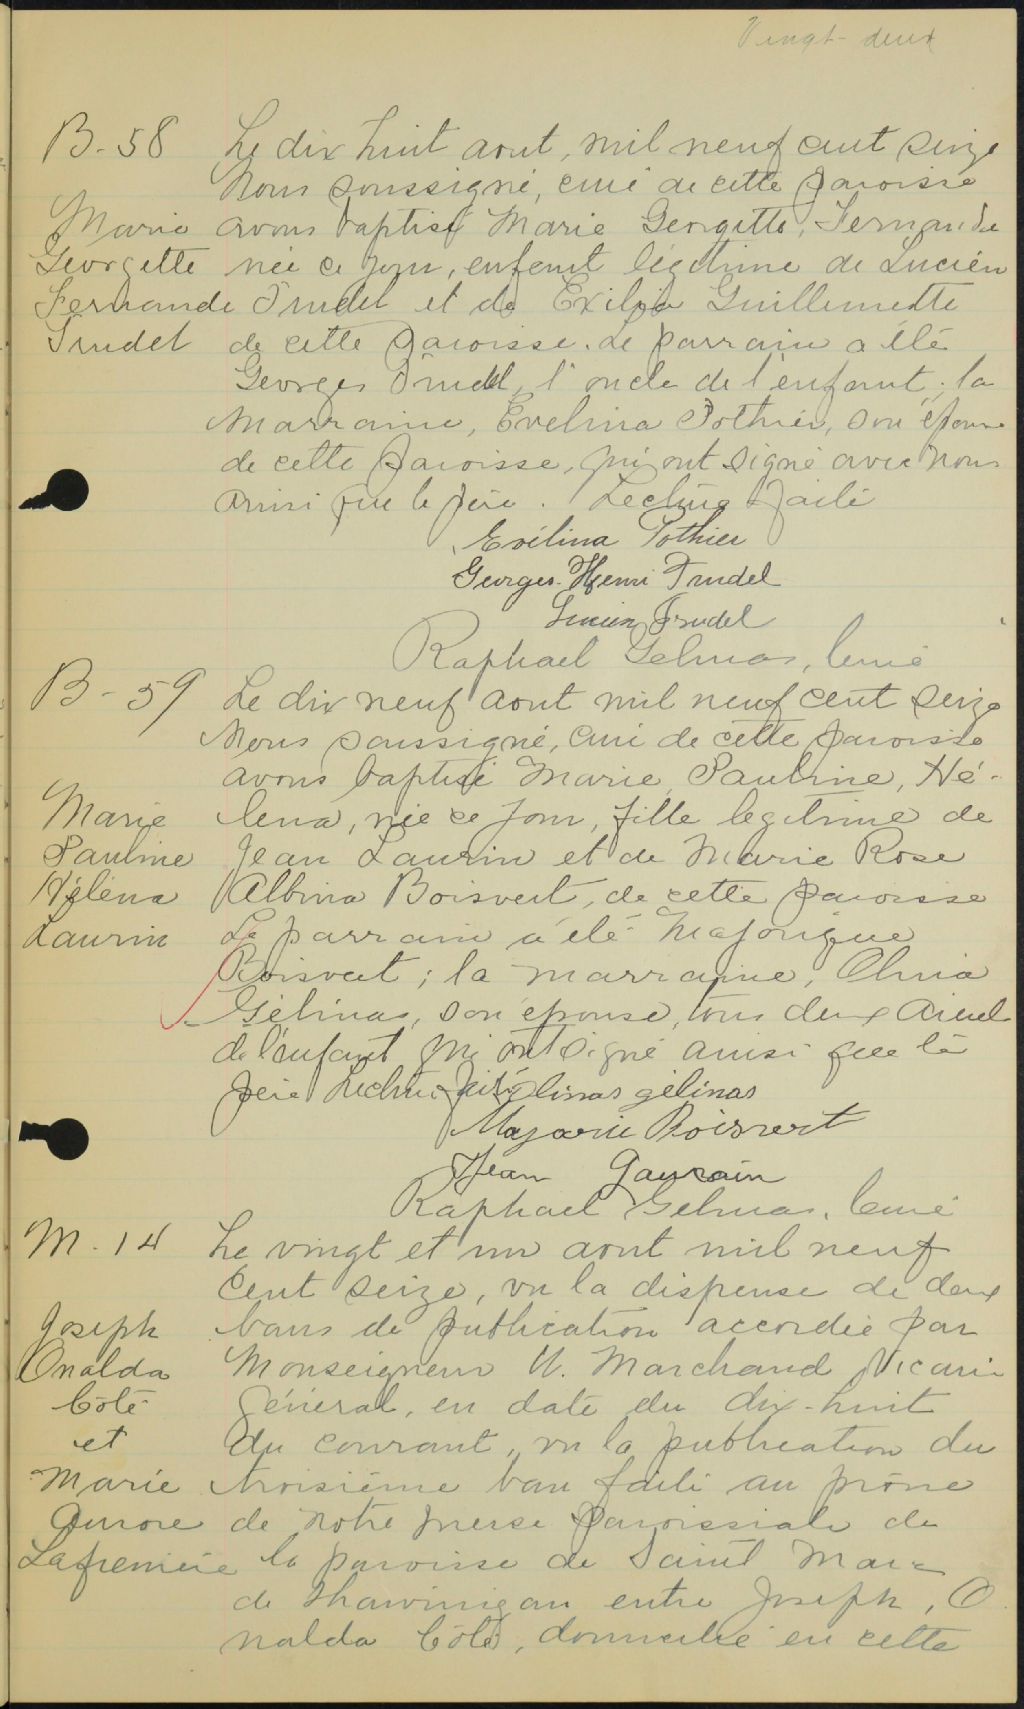 Vingt-deux
B-58
Marie
Georgette
Fernande
Trudel
Le dix huit aout, mil neuf cent seize
Nous soussigné, curé de cette paroisse
avons baptisé Marie Georgette, Fernande
née ce jour, enfant légitime de Lucien
Trudel et de Guillemette
de cette paroisse. Le parrain a été
Georges Trudel, l'oncle de l'enfant; la
Marraine, Evelina Pothier, son épouse
de cette paroisse, qui ont signé avec nous
ainsi que le père. Lecture faite
Evélina Pothier
Georges-Henri Trudel
Lucien Trudel
Raphael Gelinas, Curé
B-59
Marie
Pauline
Héléna
Laurin
Le dix neuf aout mil neuf cent seize
Nous soussigné, curé de cette paroisse
avons baptisé Marie, Pauline, Hé-
lena, née ce jour, fille legitime de
Jean Laurin et de Marie Rose
Albina Boisvert, de cette paroisse
Le parrain a été Majorique
Boisvert; la marraine,
Gélinas, son épouse, tous deux aieul
de l'enfant qui ont signé ainsi que le
père Lecture faite gélinas
Boisvert
Jean
Raphael Gelinas, Curé
M. 14
Joseph
Onalda
Côté
et
Marie
Aurore
Lafrenière
Le vingt et un aout mil neuf
cent seize, vu la dispense de deux
bans de publication accordée par
Monseigneur U. Marchand Vicaire
général, en date du dix-huit
du courant, vu la publication du
troisième ban faite au prône
de notre messe paroissiale de
la paroisse de Saint Marc
de Shawinigan entre Joseph, O
nalda Côté, domicilié en cette